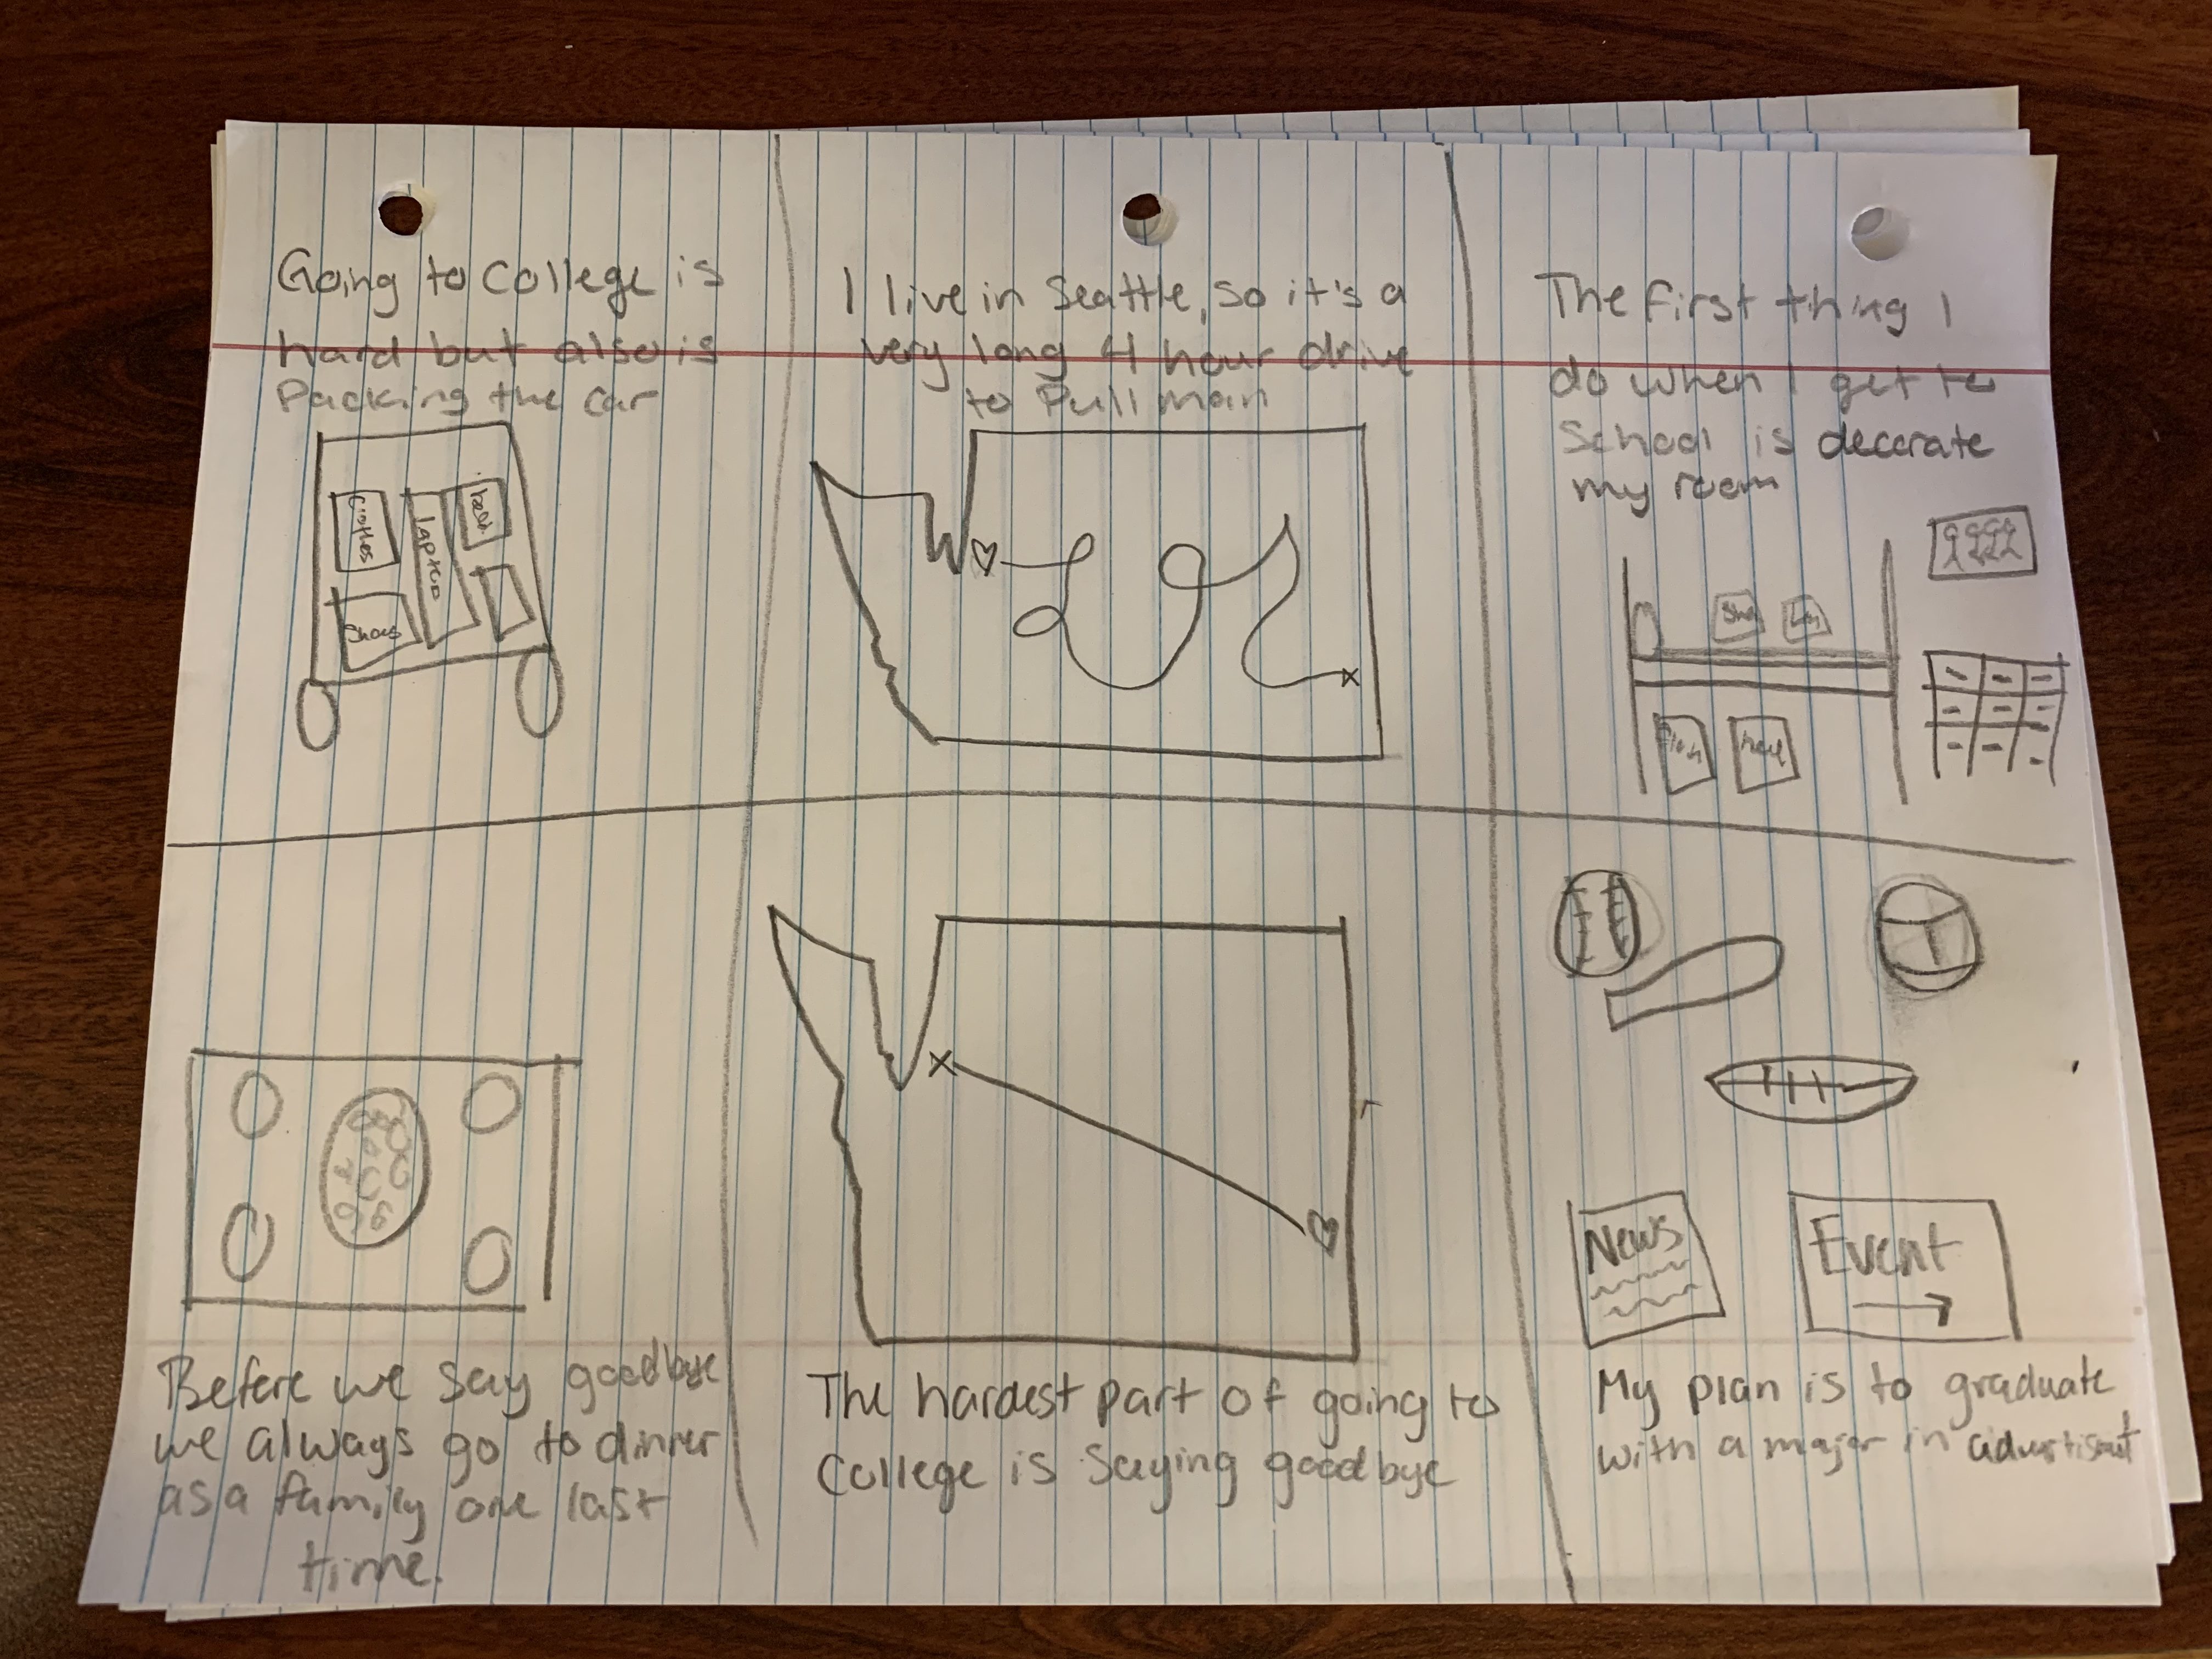 Going to College is
hard but also is
Packing the car
Clothes
laptop
Shoes
I live in Seattle, so it's a
very long 4 hour drive
to Pullman
The first thing I
do when I get to
School is decorate
my room
Before we say goodbye
we always go to dinner
as a family one last
time.
The hardest part of going to
College is saying goodbye
News
Event
My plan is to graduate
with a major in